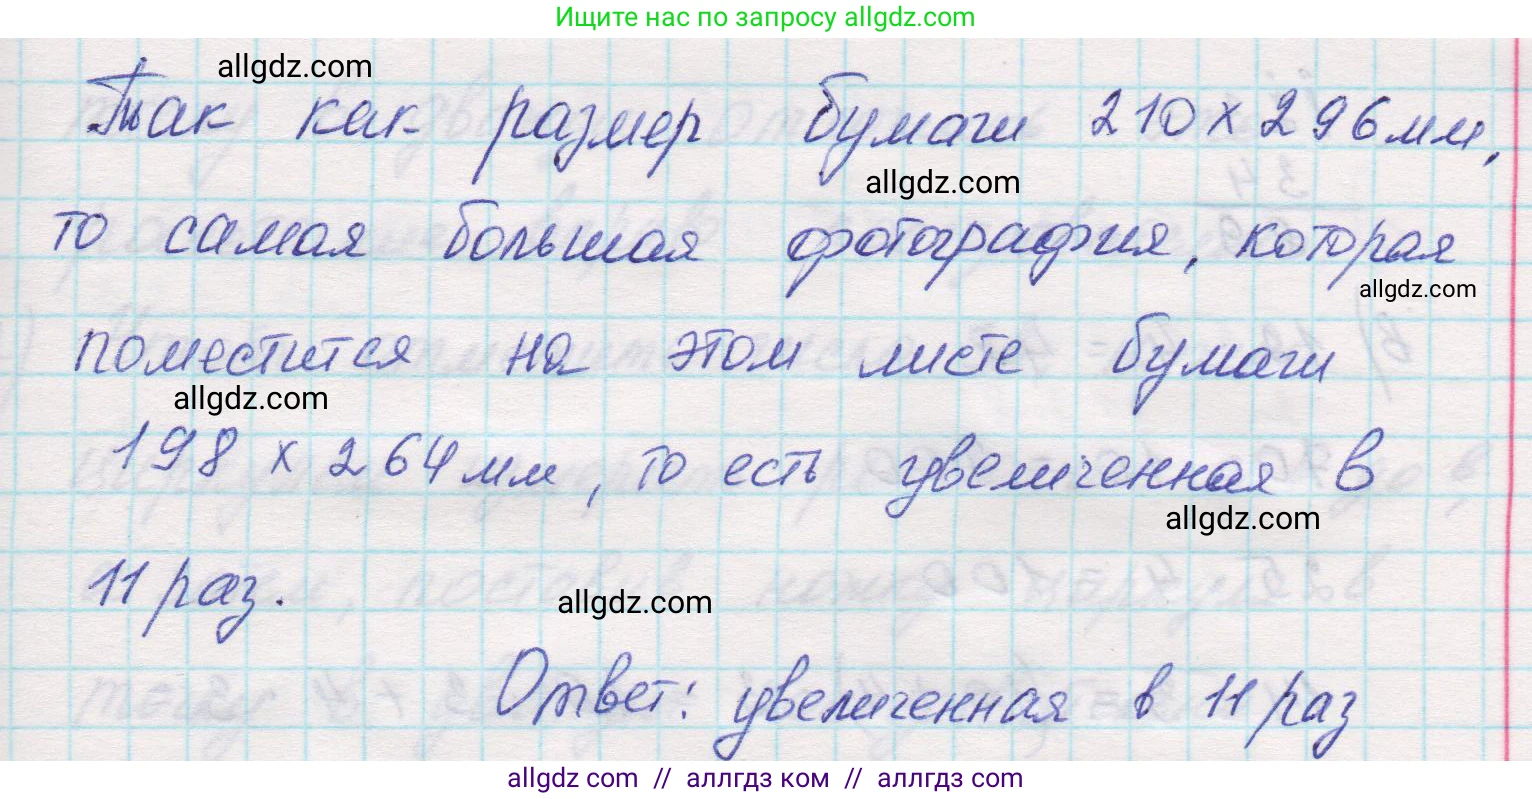 Ищите нас по запросу allgdz.com
allgdz.com
Так как размер бумаги 210 x 296 мм,
allgdz.com
то самая большая фотография, которая
allgdz.com
поместится на этом листе бумаги
allgdz.com
198 x 264 мм, то есть увеличенная в
allgdz.com
11 раз.
allgdz.com
Ответ: увеличенная в 11 раз
allgdz com // аллгдз ком // аллгдз com